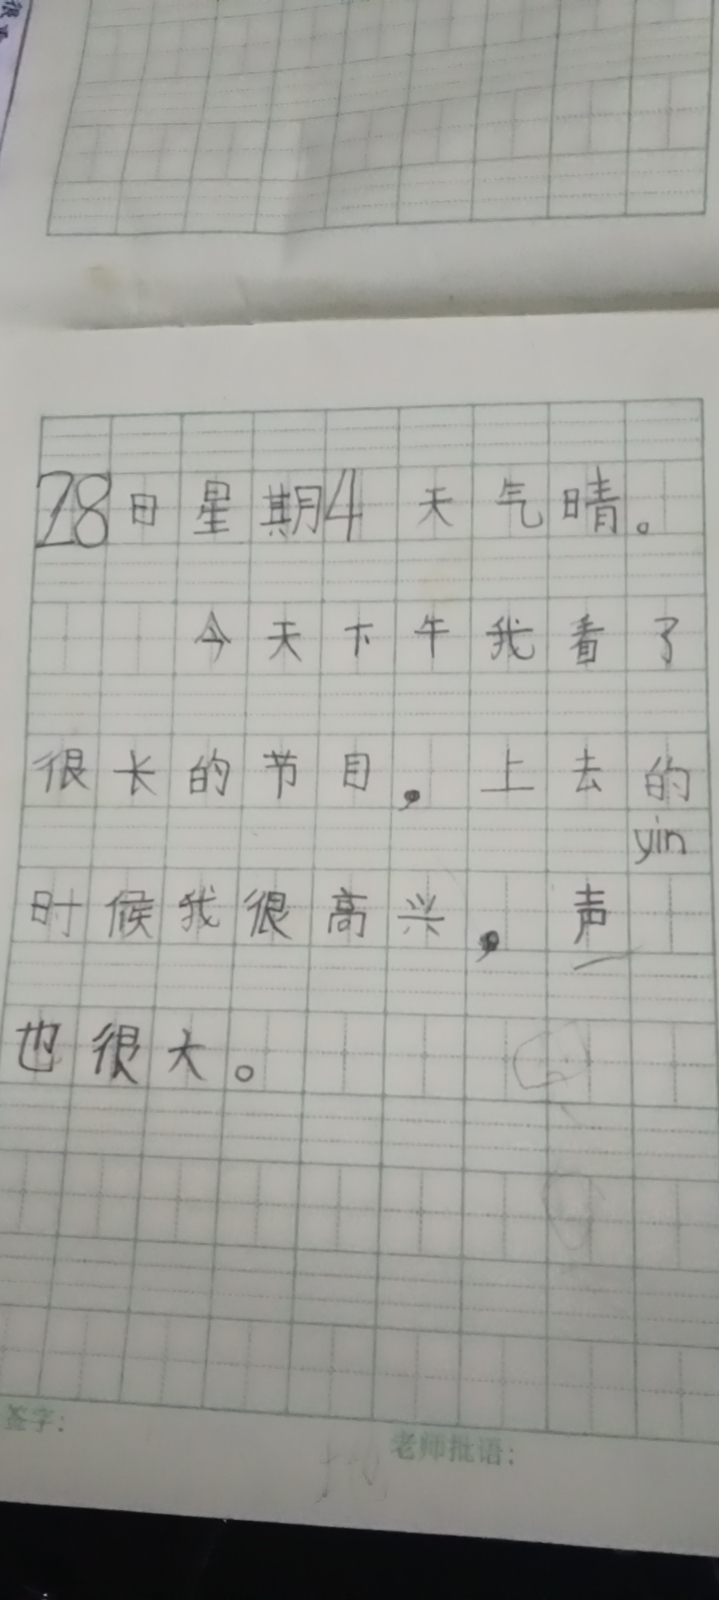 28日星期4 天气晴。
今天下午我看了
很长的节目，上去的
yin
时候我很高兴，声
也很大。
签字：
老师批语：